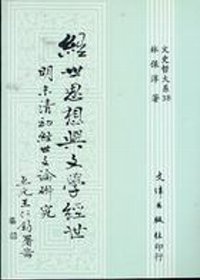 文史哲大系38
林保淳 著
經世思想與文學經世
明末清初經世文論研究
文津出版社印行